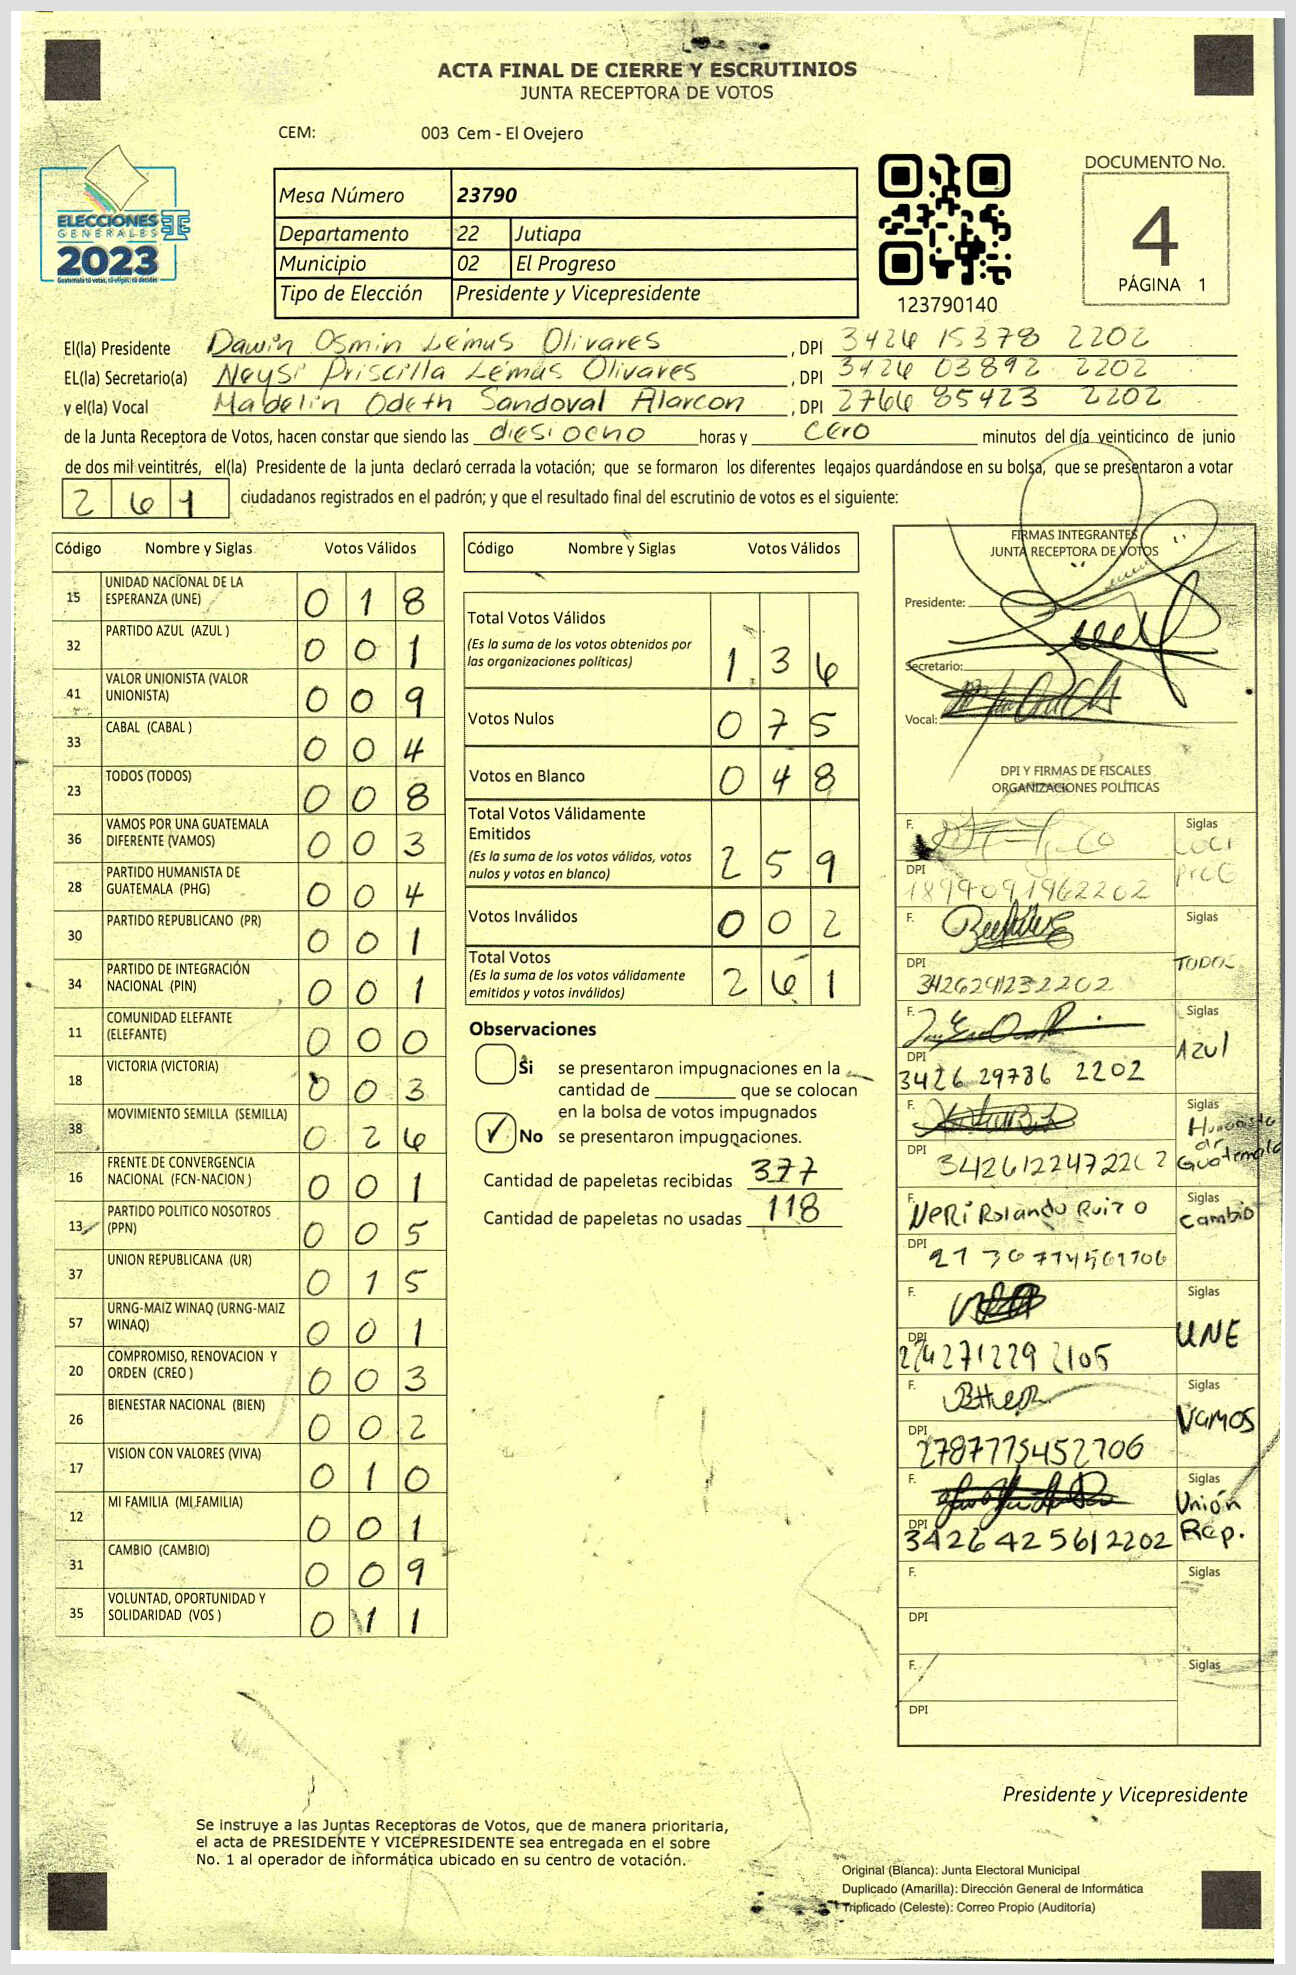 ACTA FINAL DE CIERRE Y ESCRUTINIOS
JUNTA RECEPTORA DE VOTOS
CEM: 003 Cem - El Ovejero
ELECCIONES
GENERALES
2023
Guatemala tú votas, tú eliges, tú decides
Mesa Número 23790
Departamento 22 Jutiapa
Municipio 02 El Progreso
Tipo de Elección Presidente y Vicepresidente
123790140
DOCUMENTO No.
4
PÁGINA 1
El(la) Presidente Dawin Osmin Lemus Olivares , DPI 3426 15378 2202
EL(la) Secretario(a) Neysi Priscilla Lemus Olivares , DPI 3426 03892 2202
y el(la) Vocal Madelin Odeth Sandoval Alarcon , DPI 2766 85423 2202
de la Junta Receptora de Votos, hacen constar que siendo las diesiocho horas y cero minutos del día veinticinco de junio
de dos mil veintitrés, el(la) Presidente de la junta declaró cerrada la votación; que se formaron los diferentes legajos guardándose en su bolsa, que se presentaron a votar
261 ciudadanos registrados en el padrón; y que el resultado final del escrutinio de votos es el siguiente:
Código Nombre y Siglas Votos Válidos
15 UNIDAD NACIONAL DE LA ESPERANZA (UNE) 018
32 PARTIDO AZUL (AZUL ) 001
41 VALOR UNIONISTA (VALOR UNIONISTA) 009
33 CABAL (CABAL ) 004
23 TODOS (TODOS) 008
36 VAMOS POR UNA GUATEMALA DIFERENTE (VAMOS) 003
28 PARTIDO HUMANISTA DE GUATEMALA (PHG) 004
30 PARTIDO REPUBLICANO (PR) 001
34 PARTIDO DE INTEGRACIÓN NACIONAL (PIN) 001
11 COMUNIDAD ELEFANTE (ELEFANTE) 000
18 VICTORIA (VICTORIA) 003
38 MOVIMIENTO SEMILLA (SEMILLA) 026
16 FRENTE DE CONVERGENCIA NACIONAL (FCN-NACION ) 001
13 PARTIDO POLITICO NOSOTROS (PPN) 005
37 UNION REPUBLICANA (UR) 015
57 URNG-MAIZ WINAQ (URNG-MAIZ WINAQ) 001
20 COMPROMISO, RENOVACION Y ORDEN (CREO ) 003
26 BIENESTAR NACIONAL (BIEN) 002
17 VISION CON VALORES (VIVA) 010
12 MI FAMILIA (MI FAMILIA) 001
31 CAMBIO (CAMBIO) 009
35 VOLUNTAD, OPORTUNIDAD Y SOLIDARIDAD (VOS ) 011
Código Nombre y Siglas Votos Válidos
Total Votos Válidos 136
(Es la suma de los votos obtenidos por
las organizaciones políticas)
Votos Nulos 075
Votos en Blanco 048
Total Votos Válidamente
Emitidos 259
(Es la suma de los votos válidos, votos
nulos y votos en blanco)
Votos Inválidos 002
Total Votos 261
(Es la suma de los votos válidamente
emitidos y votos inválidos)
Observaciones
Si se presentaron impugnaciones en la
cantidad de ________ que se colocan
en la bolsa de votos impugnados
✓ No se presentaron impugnaciones.
Cantidad de papeletas recibidas 377
Cantidad de papeletas no usadas 118
FIRMAS INTEGRANTES
JUNTA RECEPTORA DE VOTOS
Presidente:
Secretario:
Vocal:
DPI Y FIRMAS DE FISCALES
ORGANIZACIONES POLÍTICAS
F. Siglas
DPI 1899091962202
F. Siglas TODOS
DPI 3426291232202
F. Siglas AZUl
DPI 3426 29786 2202
F. Siglas Humanista de Guatemala
DPI
F. NeRi Rolando Ruizo Siglas Cambio
DPI
F. Siglas UNE
DPI
F. Siglas VAMOS
DPI 2787775452706
F. Siglas Unión Rep.
DPI 3426425612202
F. Siglas
DPI
F. Siglas
DPI
Presidente y Vicepresidente
Se instruye a las Juntas Receptoras de Votos, que de manera prioritaria,
el acta de PRESIDENTE Y VICEPRESIDENTE sea entregada en el sobre
No. 1 al operador de informática ubicado en su centro de votación.
Original (Blanca): Junta Electoral Municipal
Duplicado (Amarilla): Dirección General de Informática
Triplicado (Celeste): Correo Propio (Auditoría)